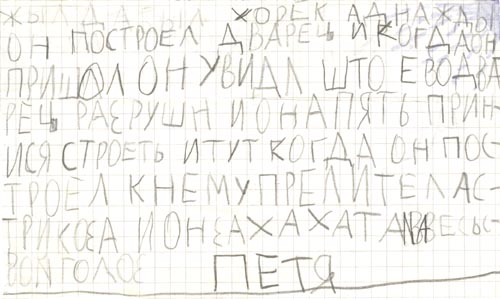 ЖЫЛ ДА БЫЛ ХОРЕК АДНАЖДЫ
ОН ПОСТРОЕЛ ДВАРЕЦ И КОГДА ОН
ПРИШОЛ ОН УВИДЛ ШТО ЕВО ДВА
РЕЦ РАЗРУШИ И ОН АПЯТЬ ПРИН
ИСЯ СТРОЕТЬ И ТУТ КОГДА ОН ПОС-
ТРОЕЛ К НЕМУ ПРЕЛИТЕЛА С-
ТРИКОЗА И ОН ЗАХАХАТАЛ НА ВЕСЬ С-
ВОЙ ГОЛОС
ПЕТЯ